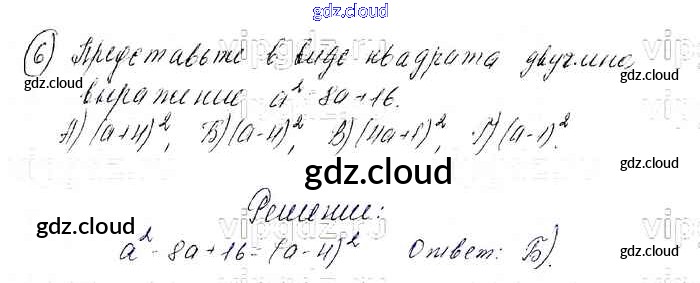 gdz.cloud
6) Представьте в виде квадрата двучлена
gdz.cloud gdz.cloud
выражение a² - 8a + 16.
А) (a+4)², Б) (a-4)², В) (4a+1)², Г) (a-1)².
gdz.cloud
Решение:
gdz.cloud gdz.cloud
a² - 8a + 16 = (a-4)² Ответ: Б).